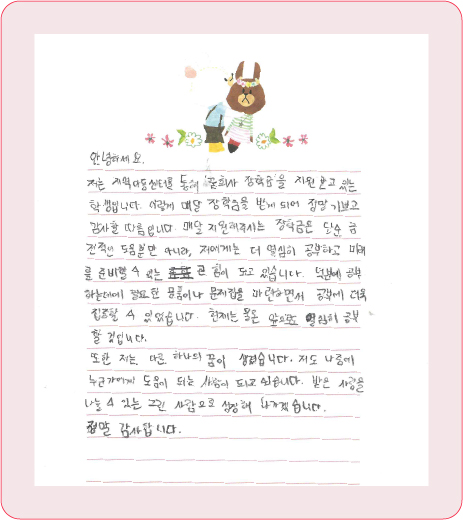 안녕하세요.
저는 지역아동센터를 통해 '꿈회사 장학금'을 지원 받고 있는
학생입니다. 이렇게 매달 장학금을 받게 되어 정말 기쁘고
감사할 따름입니다. 매달 지원해주시는 장학금은 단순 금
전적인 도움뿐만 아니라, 저에게는 더 열심히 공부하고 미래
를 준비할 수 있는 큰 힘이 되고 있습니다. 덕분에 공부
하는데에 필요한 물품이나 문제집을 마련하면서 공부에 더욱
집중할 수 있었습니다. 현재는 물론 앞으로도 열심히 공부
할 것입니다.
또한 저는 다른 하나의 꿈이 생겼습니다. 저도 나중에
누군가에게 도움이 되는 사람이 되고 싶습니다. 받은 사랑을
나눌 수 있는 그런 사람으로 성장해 나가겠습니다.
정말 감사합니다.